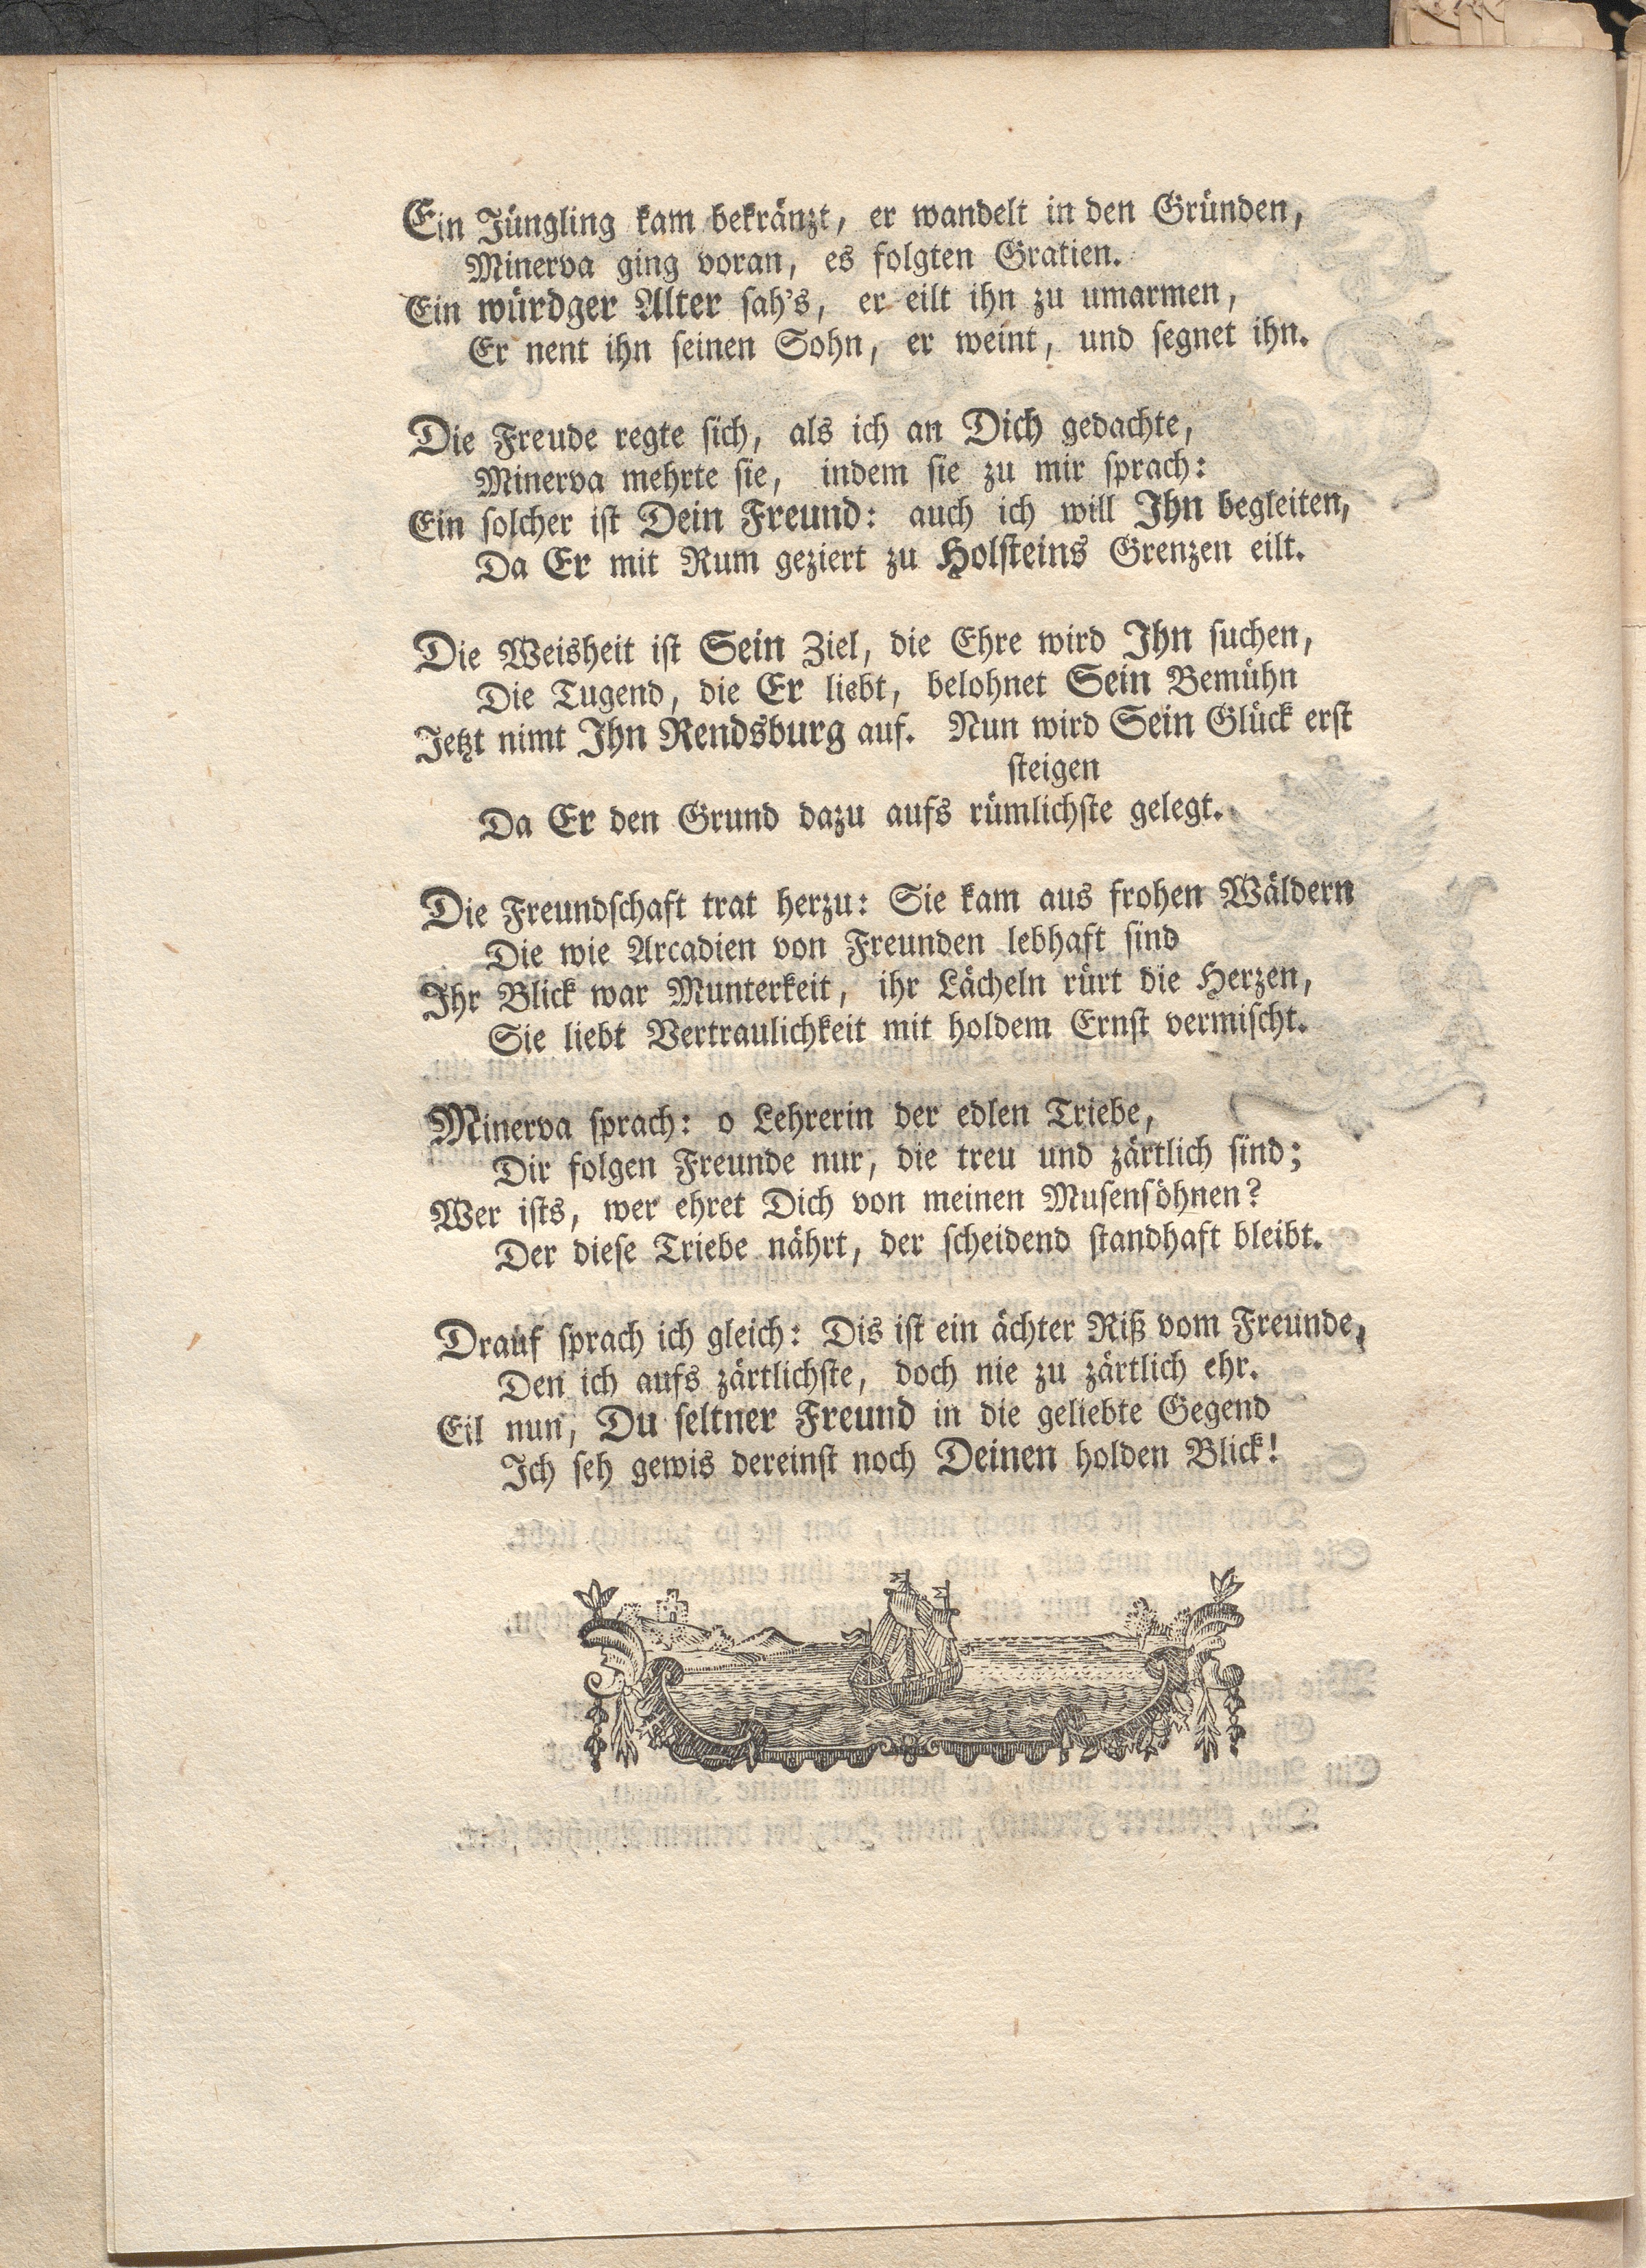 Ein Jüngling kam bekränzt, er wandelt in den Gründen,
Minerva ging voran, es folgten Gratien.
Ein würdger Alter ſah's, er eilt ihn zu umarmen,
Er nent ihn ſeinen Sohn, er weint, und ſegnet ihn.
Die Freude regte ſich, als ich an Dich gedachte,
Minerva mehrte ſie, indem ſie zu mir ſprach:
Ein ſolcher iſt Dein Freund: auch ich will Ihn begleiten,
Da Er mit Rum geziert zu Holſteins Grenzen eilt.
Die Weisheit iſt Sein Ziel, die Ehre wird Ihn ſuchen,
Die Tugend, die Er liebt, belohnet Sein Bemühn
Jetzt nimt Ihn Rendsburg auf. Nun wird Sein Glück erſt
ſteigen
Da Er den Grund dazu aufs rümlichſte gelegt.
Die Freundſchaft trat herzu: Sie kam aus frohen Wäldern
Die wie Arcadien von Freunden lebhaft ſind
Ihr Blick war Munterkeit, ihr Lächeln rürt die Herzen,
Sie liebt Vertraulichkeit mit holdem Ernſt vermiſcht.
Minerva ſprach: o Lehrerin der edlen Triebe,
Dir folgen Freunde nur, die treu und zärtlich ſind;
Wer iſts, wer ehret Dich von meinen Muſenſöhnen?
Der dieſe Triebe nährt, der ſcheidend ſtandhaft bleibt.
Drauf ſprach ich gleich: Dis iſt ein ächter Riß vom Freunde,
Den ich aufs zärtlichſte, doch nie zu zärtlich ehr.
Eil nun, Du ſeltner Freund in die geliebte Gegend
Ich ſeh gewis dereinſt noch Deinen holden Blick!